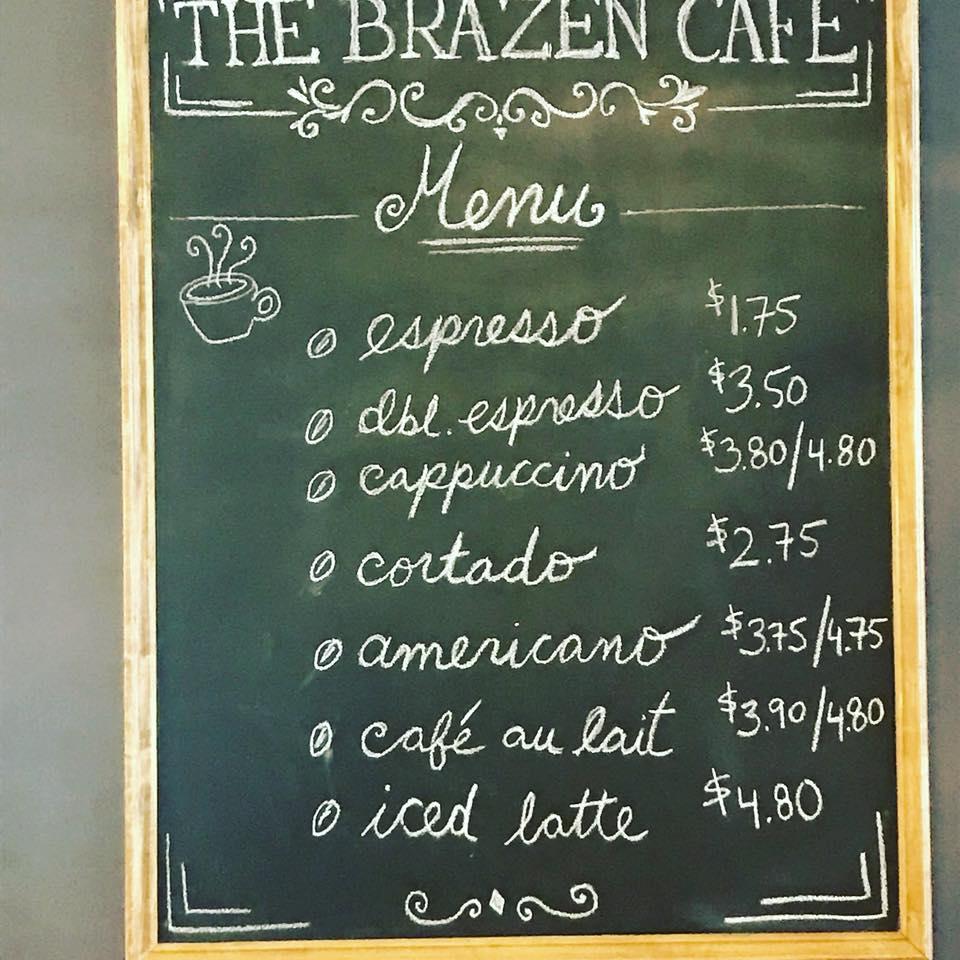 THE BRAZEN CAFE
Menu
espresso $1.75
dbl. espresso $3.50
cappuccino $3.80/4.80
cortado $2.75
americano $3.75/4.75
café au lait $3.90/4.80
iced latte $4.80